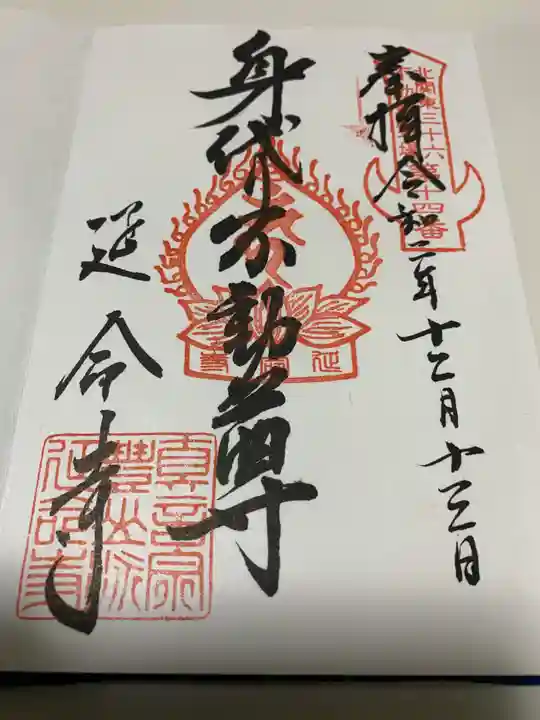 奉拝 令和二年十二月十三日
北関東三十六
不動
十四番
身代不動尊
延命寺
延命寺
真言宗
豊山派
延命寺